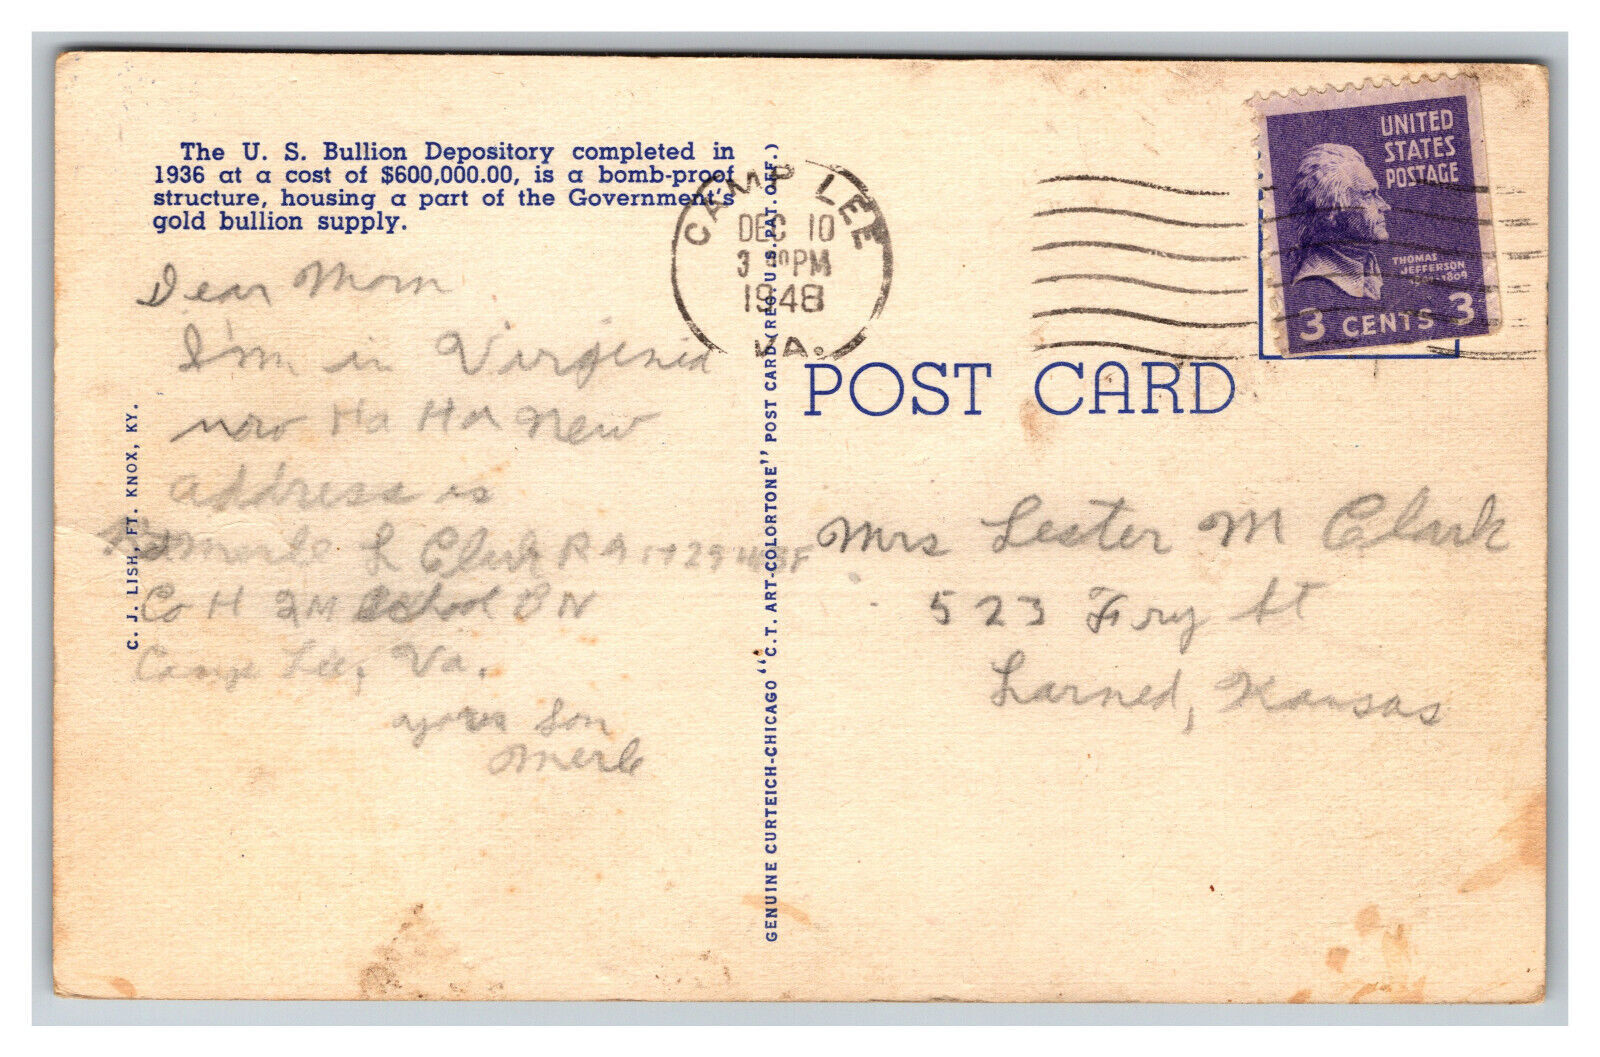 The U. S. Bullion Depository completed in
1936 at a cost of $600,000.00, is a bomb-proof
structure, housing a part of the Government's
gold bullion supply.
Dear Mom
I'm in Virginia
now Ha Ha New
address is
Merle L Clark RA
Co H QM School BN
Camp Lee, Va.
your Son
Merle
C. J. LISH, FT. KNOX, KY.
GENUINE CURTEICH-CHICAGO "C.T. ART-COLORTONE" POST CARD (REG. U.S. PAT. OFF.)
CAMP LEE
DEC 10
3 PM
1948
VA.
UNITED
STATES
POSTAGE
THOMAS
JEFFERSON
1809
3 CENTS 3
POST CARD
Mrs Lester M Clark
523 Fry St
Larned, Kansas